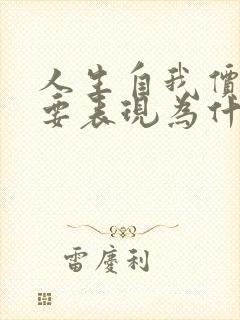 人生自我價
要表現為什
雷慶利